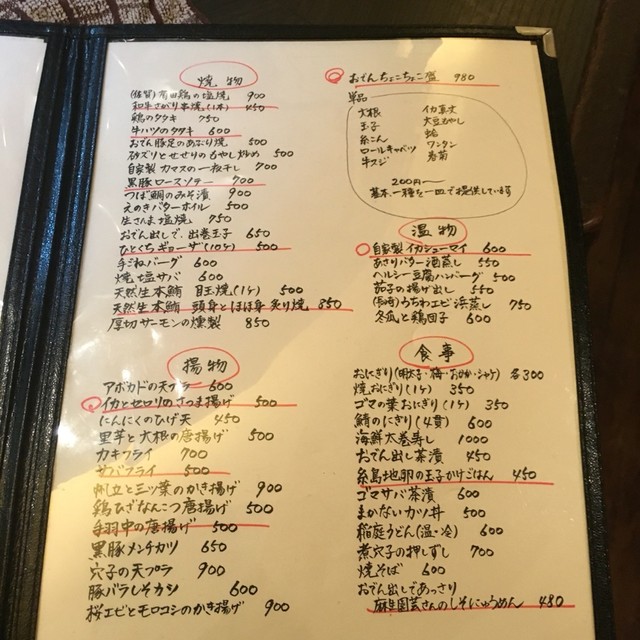 焼物
(佐賀)有田鶏の塩焼 900
和牛さがり串焼(1本) 450
鶏のタタキ 750
牛ハツのタタキ 600
おでん豚足のあぶり焼 500
砂ズリとせせりのもやし炒め 500
自家製カマスの一夜干し 700
黒豚ロースソテー 700
つぼ鯛のみそ漬 900
えのきバターホイル 500
生さんま塩焼 750
おでん出しで、出巻玉子 650
ひとくちギョーザ(10ケ) 500
手ごねバーグ 600
焼塩サバ 600
天然生本鮪 目玉焼(1ケ) 500
天然生本鮪 頭身とほほ身炙り焼 850
厚切サーモンの燻製 850
揚物
アボカドの天プラ 600
イカとセロリのさつま揚げ 500
にんにくのひげ天 450
里芋と大根の唐揚げ 500
カキフライ 700
サバフライ 500
帆立と三ツ葉のかき揚げ 900
鶏ひざなんこつ唐揚げ 500
手羽中の唐揚げ 500
黒豚メンチカツ 650
穴子の天プラ 900
豚バラしそカツ 600
桜エビとモロコシのかき揚げ 900
おでんちょこちょこ盛 980
単品
大根 イカ真丈
玉子 大豆もやし
糸こん 蛤
ロールキャベツ ワンタン
牛スジ 春菊
200円〜
基本、一種を一皿で提供しています
温物
自家製イカシューマイ 600
あさりバター酒蒸し 550
ヘルシー豆腐ハンバーグ 500
茄子の揚げ出し 550
(長崎)うちわエビ浜蒸し 750
冬瓜と鶏団子 600
食事
おにぎり(明太子・梅・おかか・シャケ) 各300
焼おにぎり(1ケ) 350
ゴマの葉おにぎり(1ケ) 350
鯖のにぎり(4貫) 600
海鮮太巻寿し 1000
おでん出し茶漬 450
糸島地卵の玉子かけごはん 450
ゴマサバ茶漬 600
まかないカツ丼 500
稲庭うどん(温・冷) 600
煮穴子の押しずし 700
焼そば 600
おでん出しであっさり
麻生園芸さんのしそにゅうめん 480